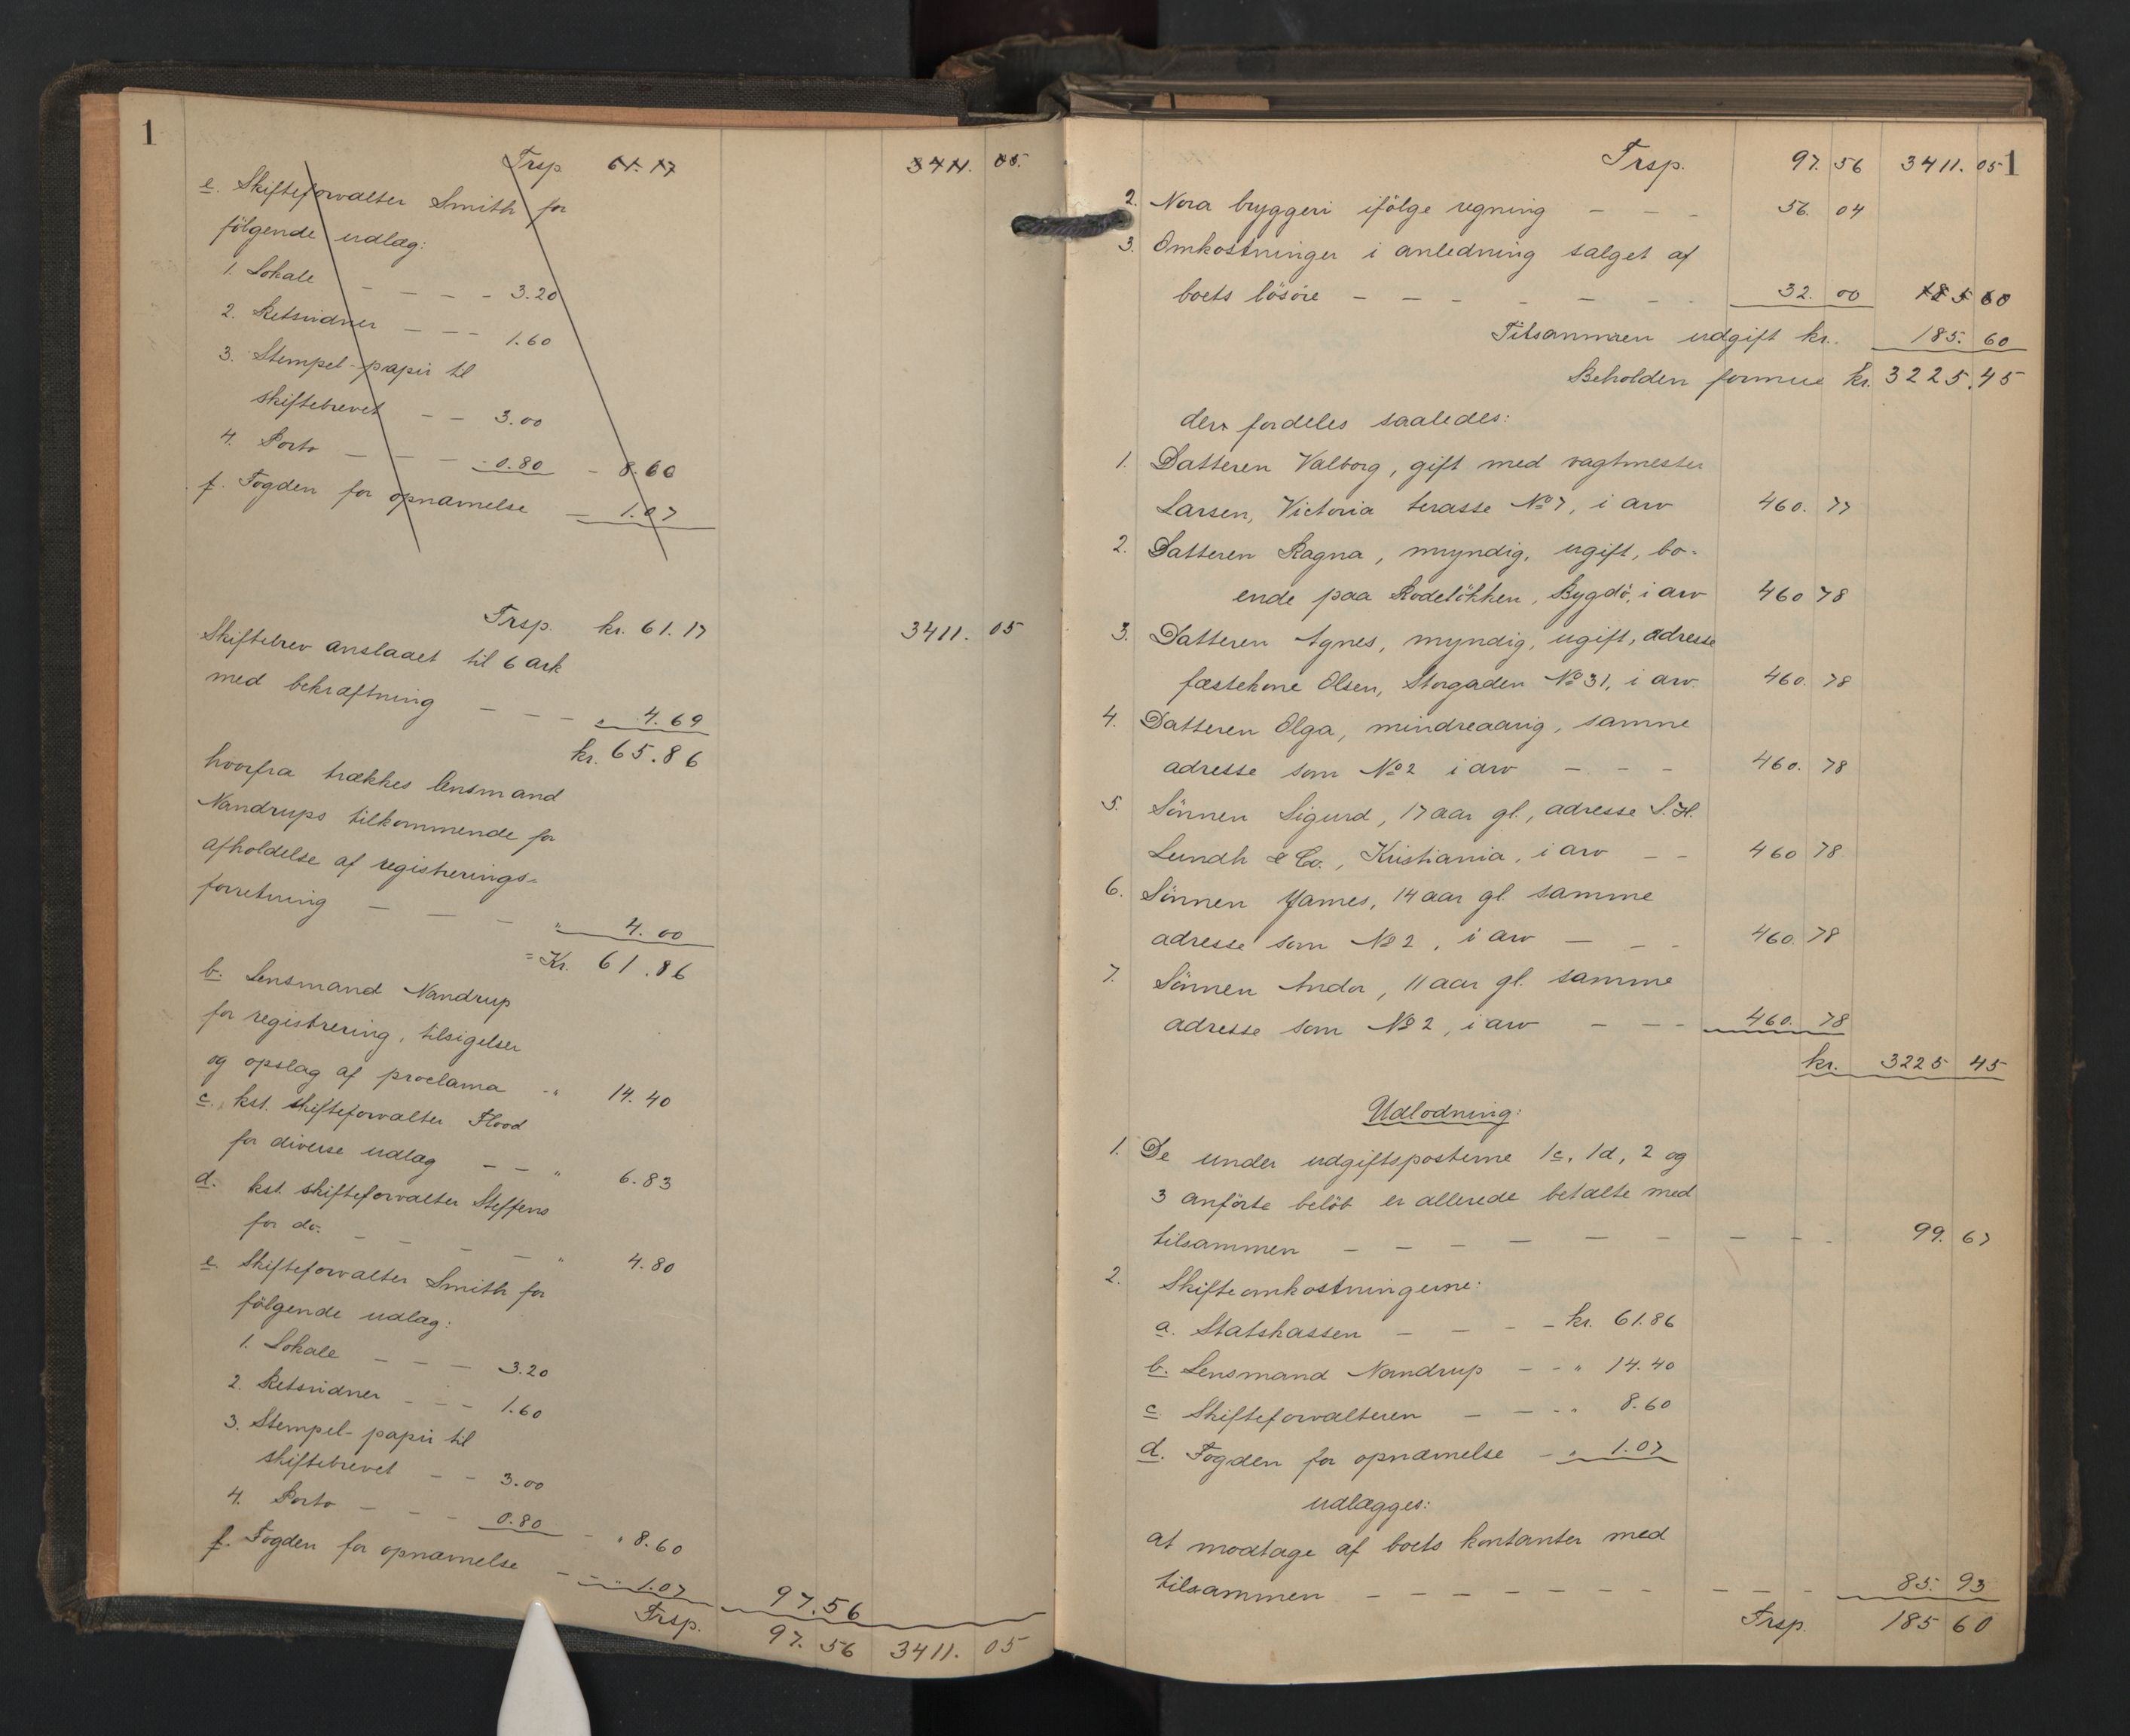 1
Trsp. 61.17 3411. 05.
e. Skifteforvalter Smith for
følgende udlæg:
1. Lokale — — — - 3.20
2. Retsvidner — — - 1.60
3. Stempel-papir til
skiftebrevet — — 3.00
4. Porto — — — 0.80 - 8.60
f. Fogden for opnævnelse — 1.07
Trsp. kr. 61.17 3411. 05
Skiftebrev anslaaet til 6 ark
med bekræftning — — — " 4.69
kr. 65.86
hvorfra trækkes lensmand
Nandrups tilkommende for
afholdelse af registrerings-
forretning — — — " 4.00
= Kr. 61.86
b. Lensmand Nandrup
for registrering, tilsigelser
og opslag af proclama - " 14.40
c. kst. skifteforvalter Flood
for diverse udlæg — — " 6.83
d. kst. skifteforvalter Steffens
for do. — — — — " 4.80
e. Skifteforvalter Smith for
følgende udlæg:
1. Lokale — — — 3.20
2. Retsvidner - - - 1.60
3. Stempel-papir til
skiftebrevet — — 3.00
4. Porto — - - 0.80 - " 8.60
f. Fogden for opnævnelse - - " 1.07 97.56
Trsp. 97. 56 3411. 05
1
Trsp. 97. 56 3411. 05
2. Nora bryggeri ifølge regning — — - 56. 04
3. Omkostninger i anledning salget af
boets løsøre — — — - - - - 32. 00 185 60
Tilsammen udgift kr. 185. 60
Beholden formue kr. 3225.45
der fordeles saaledes:
1. Datteren Valborg, gift med vagtmester
Larsen, Victoria terasse No 7, i arv 460. 77
2. Datteren Ragna, myndig, ugift, bo-
ende paa Rodeløkken, Bygdø, i arv 460 78
3. Datteren Agnes, myndig, ugift, adresse
fæstekone Olsen, Storgaden No 31, i arv. 460. 78
4. Datteren Olga, mindreaarig, samme
adresse som No 2 i arv — — - 460. 78
5. Sønnen Sigurd, 17 aar gl., adresse S. H.
Lundh & Co., Kristiania, i arv — - 460 78
6. Sønnen James, 14 aar gl. samme
adresse som No 2, i arv — - - 460. 78
7. Sønnen Andor, 11 aar gl. samme
adresse som No 2, i arv — - - 460. 78
kr. 3225 45
Udlodning:
1. De under udgiftsposterne 1c, 1d, 2 og
3 anførte beløb er allerede betalte med
tilsammen — — — — — — — - - 99. 67
2. Skifteomkostningerne:
a. Statskassen — — - - kr. 61.86
b. Lensmand Nandrup — - " 14.40
c. Skifteforvalteren — — - " 8.60
d. Fogden for opnævnelse - " 1.07
udlægges:
at modtage af boets kontanter med
tilsammen — — — — - - - — - - 85. 93
Trsp. 185 60